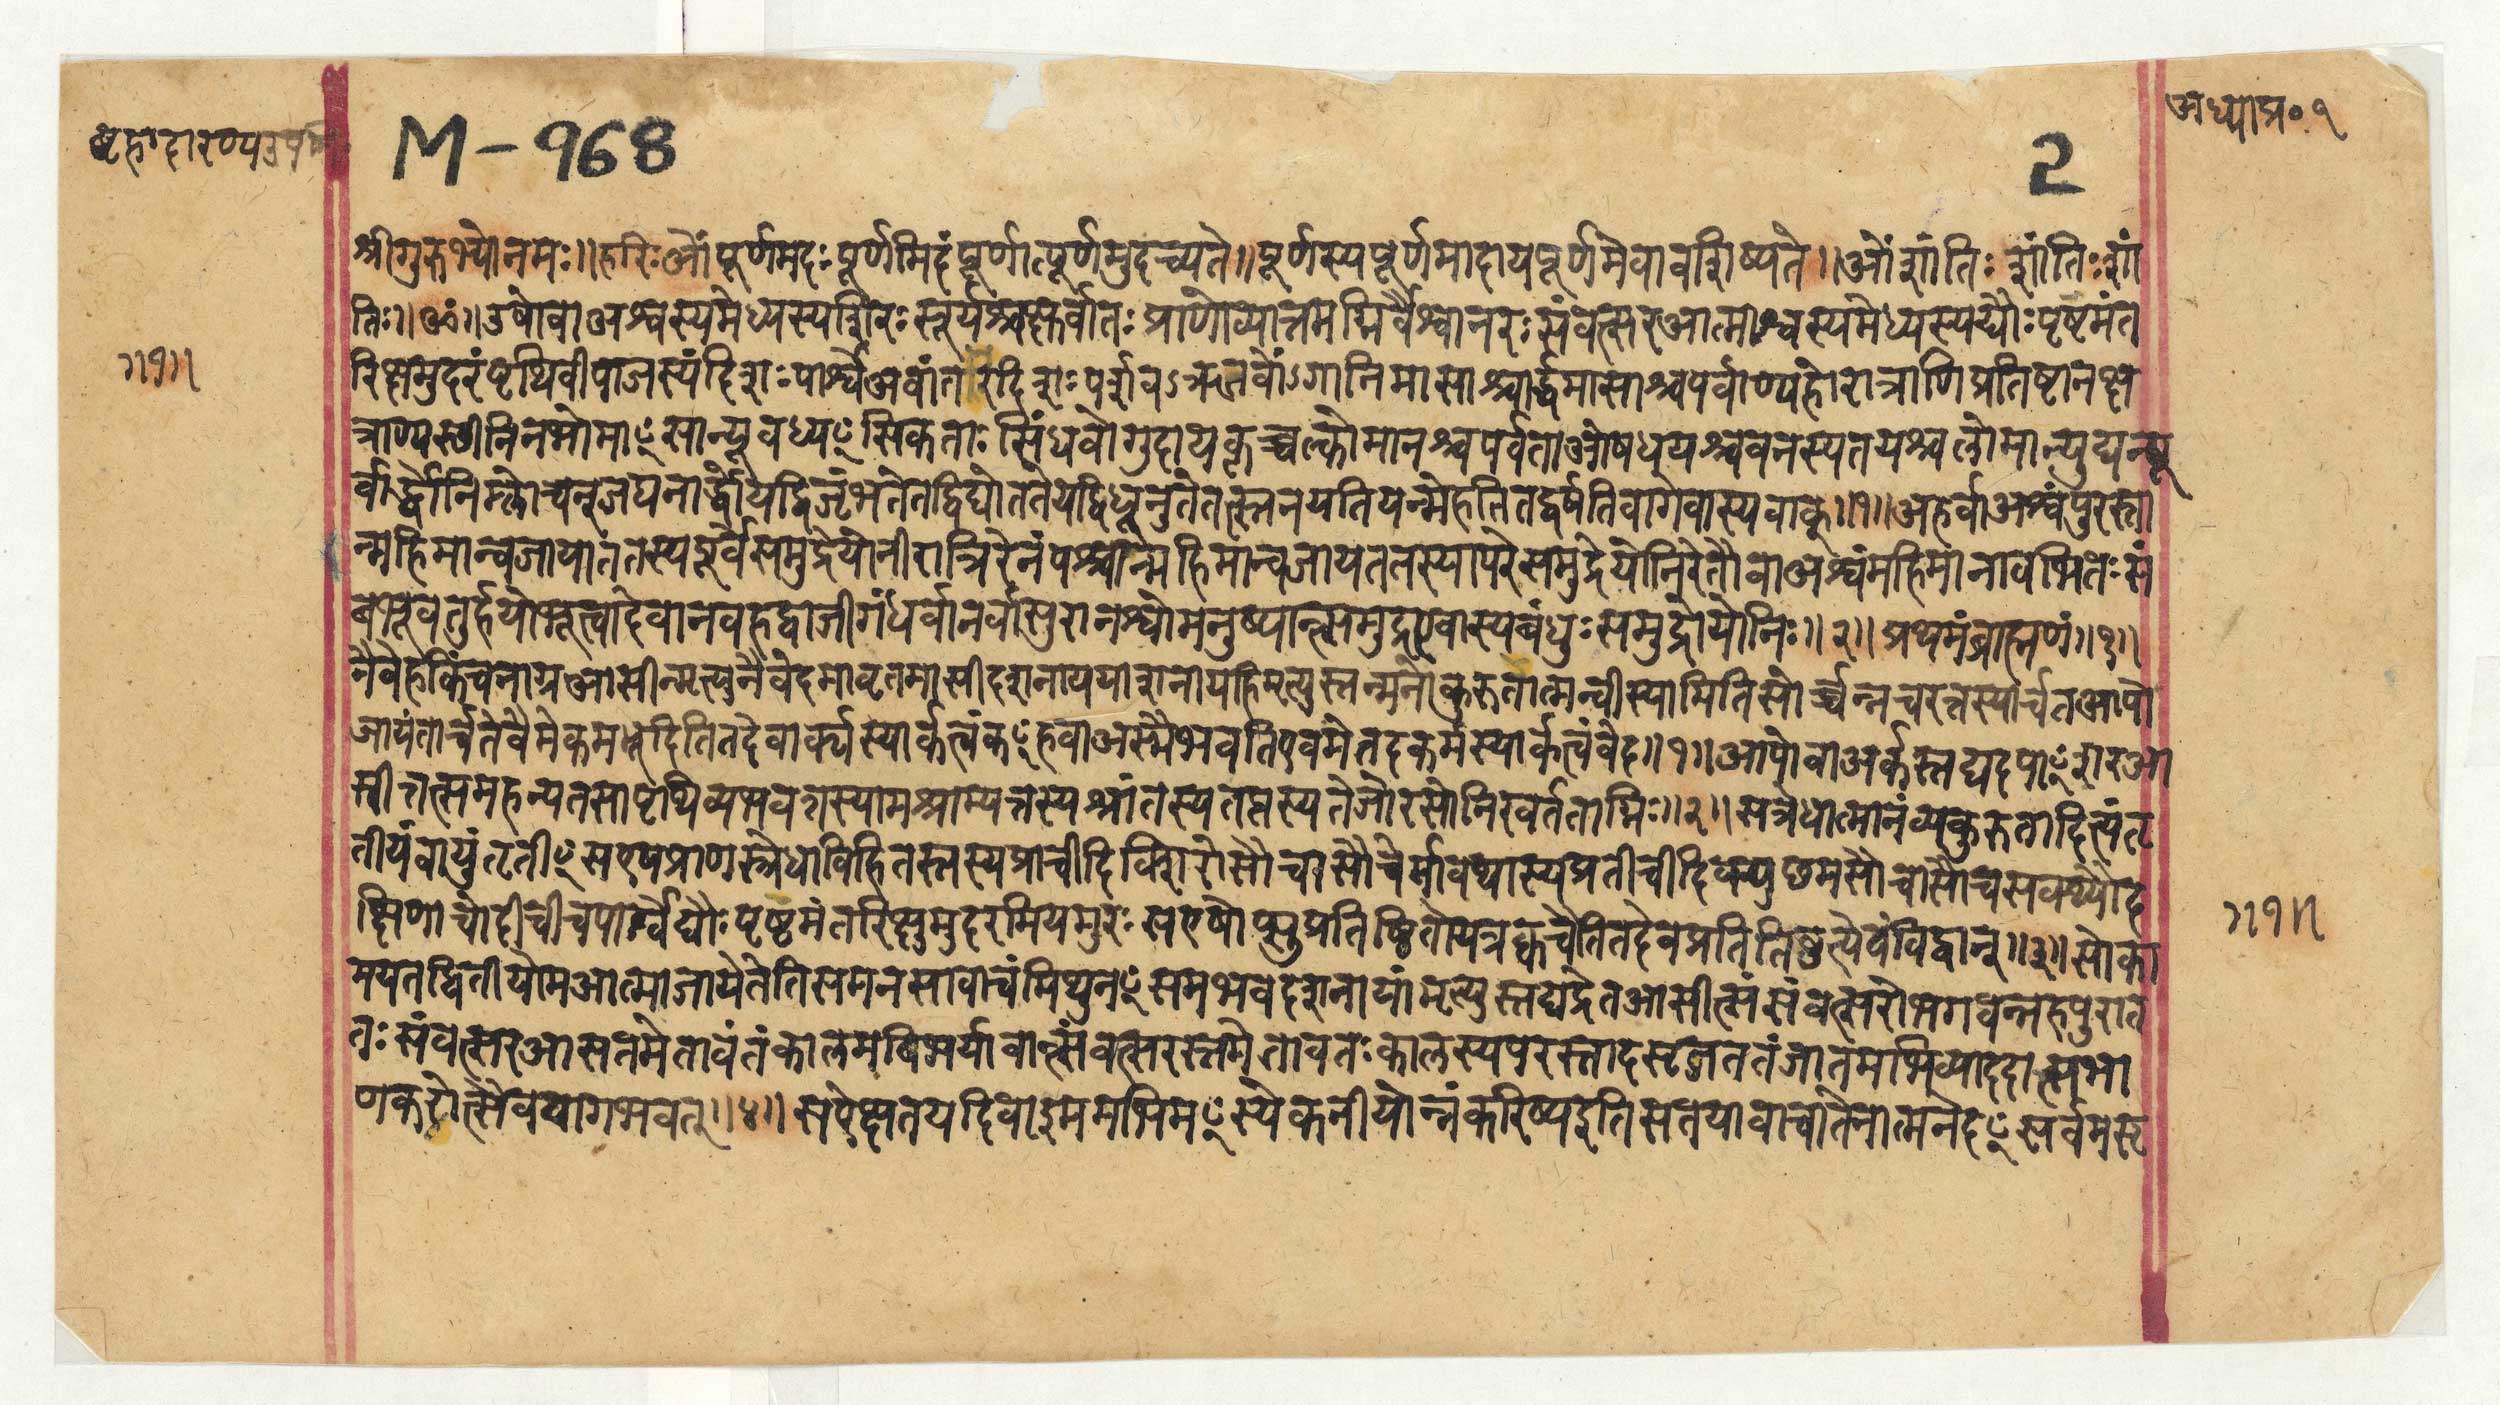 बृहदारण्यउपनि
M-968
2
अध्याप्र०१
श्रीगुरुभ्योनमः॥हरिःओंपूर्णमदःपूर्णमिदंपूर्णात्पूर्णमुदच्यते॥पूर्णस्यपूर्णमादायपूर्णमेवावशिष्यते॥ओंशांतिःशांतिःशां
तिः॥ॐ॥उषावाअश्वस्यमेध्यस्यशिरःसूर्यश्चक्षुर्वातःप्राणोव्यात्तमग्निर्वैश्वानरःसंवत्सरआत्माश्वस्यमेध्यस्यद्यौःपृष्टमंत
॥१॥
रिक्षमुदरंपृथिवीपाजस्यंदिशःपार्श्वेअवांतरदिशःपर्शवऽऋतवोंऽगानिमासाश्चार्द्धमासाश्चपर्वाण्यहोरात्राणिप्रतिष्टानक्ष
त्राण्यस्थीनिनभोमाꣳसान्यूवध्यꣳसिकताःसिंधवोगुदायकृच्चक्लोमानश्चपर्वताओषधयश्चवनस्पतयश्चलोमान्युद्यन्पू
र्वार्द्धोनिम्लोचन्जघनार्द्धोयद्विजृंभतेतद्विद्योततेयद्विधूनुतेतत्स्तनयतियन्मेहतितद्वर्षतिवागेवास्यवाक्॥१॥अहर्वाअश्वंपुरस्ता
न्महिमान्वजायाततस्यपूर्वेसमुद्रेयोनीरात्रिरेनंपश्चान्महिमान्वजायततस्यापरेसमुद्रेयोनिरेतौवाअश्वंमहिमानावभितःसं
बभूवतुर्हयोभूत्वादेवानवहद्वाजीगंधर्वानर्वासुरानश्वोमनुष्यान्त्समुद्रएवास्यबंधुःसमुद्रोयोनिः॥२॥प्रथमंब्राह्मणं॥१॥
नैवेहकिंचनाग्रआसीन्मृत्युनैवेदमावृतमासीदशनाययाशनायहिमृत्युस्तन्मनोकुरुतात्मन्वीस्यामितिसोर्च्चन्नचरत्तस्यार्चतआपो
जायंतार्च्चतेवैमेकमभूदितितदेवार्क्यस्यार्कत्वंकꣳहवाअस्मैभवतिएवमेतदर्कमस्यार्कत्वंवेद॥१॥आपोवाअर्कस्तद्यदपाꣳशरआ
सीत्तत्समहन्यतसापृथिव्यभवत्तस्यामश्राम्यत्तस्यश्रांतस्यतप्तस्यतेजोरसोनिरवर्तताग्निः॥२॥सत्रेधात्मानंव्यकुरुतादित्यंतृ
तीयंवायुंतृतीꣳसएषप्राणस्त्रेधाविहितस्तस्यप्राचीदिक्शिरोसौचासौचेर्मावथास्यप्रतीचीदिक्पुछमसौचासौचसक्थ्यौद
॥१॥
क्षिणाचोदीचीचपार्श्वेद्यौःपृष्ठमंतरिक्षमुदरमियमुरःसएषोप्सुप्रतिष्ठितोयत्रक्वचैतितदेवप्रतितिष्ठत्येवंविद्वान्॥३॥सोका
मयतद्वितीयोमआत्माजायेतेतिसमनसावाचंमिथुनꣳसमभवदशनायांमृत्युस्तद्यद्रेतआसीत्संसंवत्सरोभगवन्नहपुरातत
तःसंवत्सरआसतमेतावंतंकालमबिभर्यावान्त्संवत्सरस्तमेतावतःकालस्यपरस्तादसृजततंजातमभिव्याददात्सभा
णकरोत्सैववागभवत्॥४॥सऐक्षतयदिवाइममभिमꣳस्येकनीयोन्नंकरिष्यइतिसतयावाचातेनात्मनेदꣳसर्वमसृ